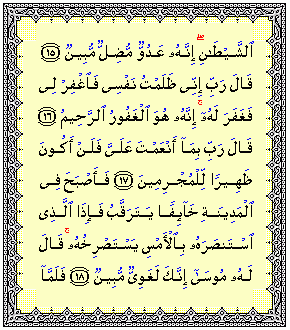 ٱلشَّيْطَٰنِۖ إِنَّهُۥ عَدُوٌّ مُّضِلٌّ مُّبِينٌ ١٥
قَالَ رَبِّ إِنِّى ظَلَمْتُ نَفْسِى فَٱغْفِرْ لِى
فَغَفَرَ لَهُۥٓۚ إِنَّهُۥ هُوَ ٱلْغَفُورُ ٱلرَّحِيمُ ١٦
قَالَ رَبِّ بِمَآ أَنْعَمْتَ عَلَىَّ فَلَنْ أَكُونَ
ظَهِيرًا لِّلْمُجْرِمِينَ ١٧ فَأَصْبَحَ فِى
ٱلْمَدِينَةِ خَآئِفًا يَتَرَقَّبُ فَإِذَا ٱلَّذِى
ٱسْتَنصَرَهُۥ بِٱلْأَمْسِ يَسْتَصْرِخُهُۥۚ قَالَ
لَهُۥ مُوسَىٰٓ إِنَّكَ لَغَوِىٌّ مُّبِينٌ ١٨ فَلَمَّآ